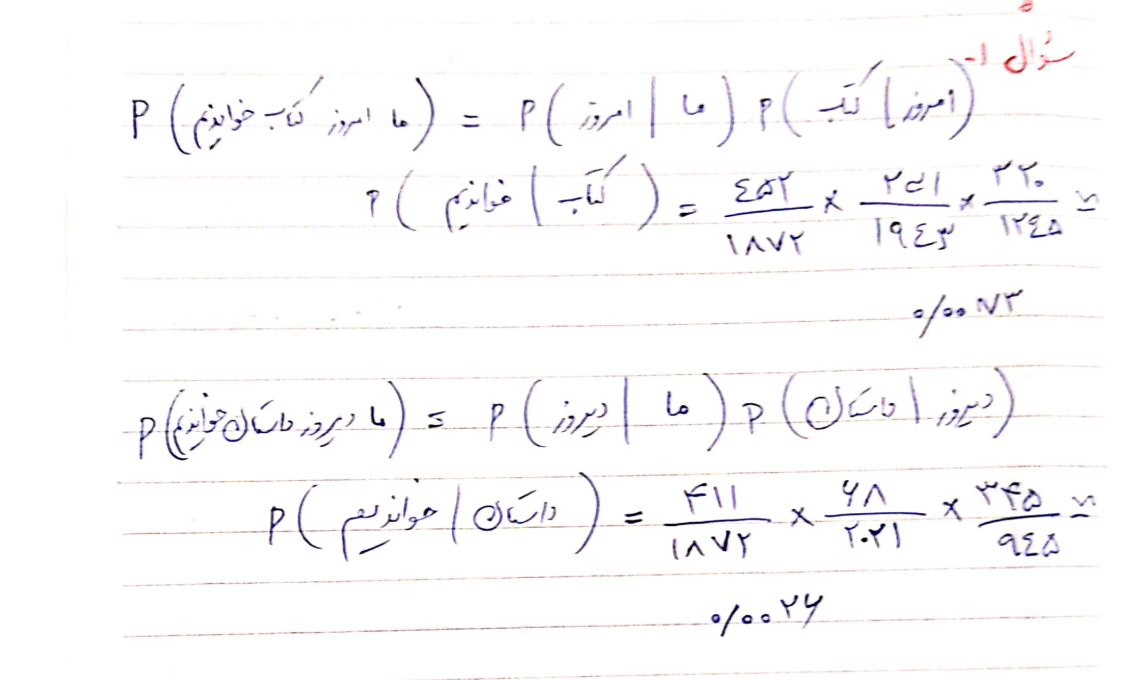 سؤال ۱-
P(ما امروز کتاب خواندیم) = P(امروز | ما) P(کتاب | امروز)
P(خواندیم | کتاب) = ۴۵۲/۱۸۷۲ × /۱۹۴۳ × ۳۲۰/۱۲۴۵ ≃
P(ما دیروز داستان خواندیم) = P(دیروز | ما) P(داستان | دیروز)
P(خواندیم | داستان) = ۴۱۱/۱۸۷۲ × ۶۸/۲۰۲۱ × ۳۴۵/۹۴۵ ≃
۰/۰۰۲۶